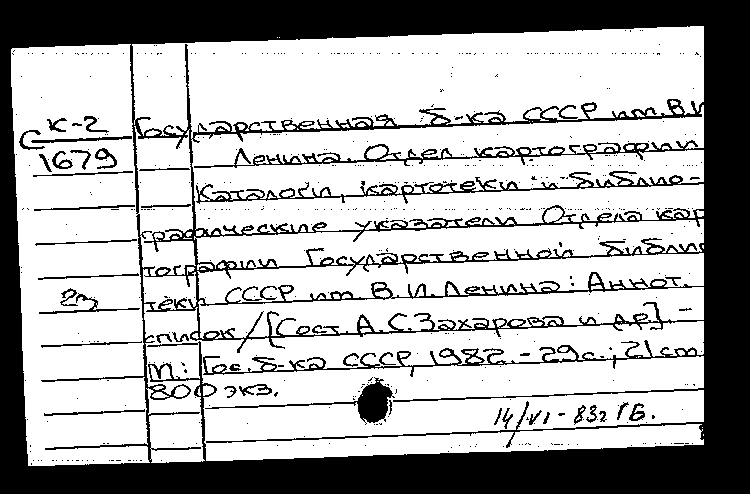 С К-2
1679
Государственная б-ка СССР им. В.И
Ленина. Отдел картографии
Каталоги, картотеки и библио-
графические указатели Отдела кар
тографии Государственной библи
теки СССР им. В.И. Ленина: Аннот.
список/[Сост. А.С. Захарова и др]. -
М.: Гос. б-ка СССР, 1982. - 29с.; 21 см
800 экз.
14/VI - 83г ГБ.